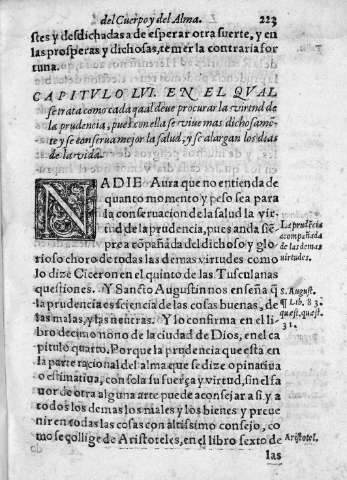 del Cuerpo y del Alma. 223
stes y desdichadas de esperar otra suerte, y en
las prosperas y dichosas, temer la contraria for
tuna.
CAPITVLO LVI. EN EL QVAL
se trata como cada qual deue procurar la virtud de
la prudencia, pues con ella se viue mas dichosamẽ-
te y se conserua mejor la salud, y se alargan los dias
de la vida.
NADIE Aura que no entienda de
quanto momento y peso sea para
la conseruacion de la salud la vir-
tud de la prudencia, pues anda siẽ-
pre acõpañada del dichoso y glo
rioso choro de todas las demas virtudes como
lo dize Ciceron en el quinto de las Tusculanas
questiones. Y Sancto Augustin nos enseña q̃
la prudencia es sciencia de las cosas buenas, de
las malas, y las neutras. Y lo confirma en el li
bro decimo nono de la ciudad de Dios, en el ca
pitulo quarto. Porque la prudencia que esta en
la parte racional del alma que se dize opinatiua
o estimatiua, con sola su fuerça y virtud, sin el fa
uor de otra alguna arte puede aconsejar a si, y a
todos los demas los males y los bienes y preue
nir en todas las cosas con altissimo consejo, co
mo se collige de Aristoteles, en el libro sexto de
las
La prudẽcia
acompañada
de las demas
virtudes.
S. August.
¶ Lib. 83.
quæst. quæst.
31.
Aristotel.